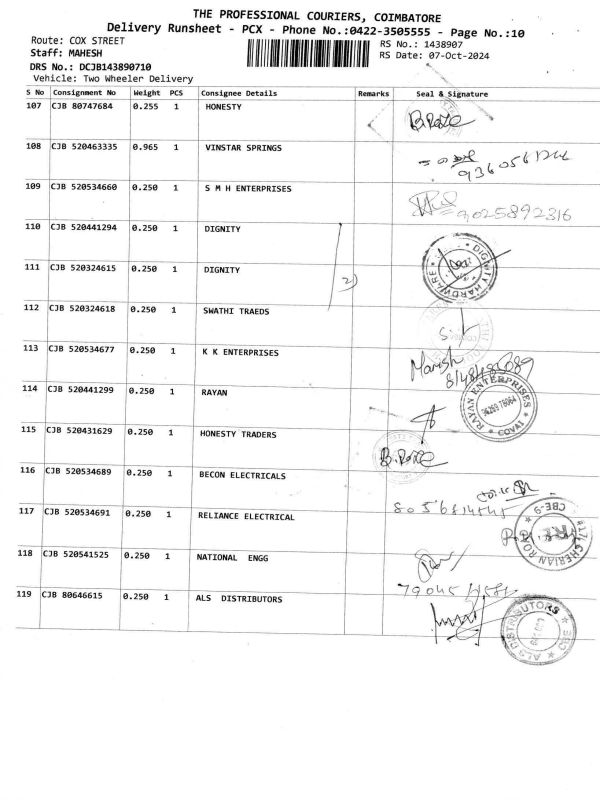 THE PROFESSIONAL COURIERS, COIMBATORE
Delivery Runsheet - PCX - Phone No.:0422-3505555 - Page No.:10
Route: COX STREET
RS No.: 1438907
Staff: MAHESH
RS Date: 07-Oct-2024
DRS No.: DCJB143890710
Vehicle: Two Wheeler Delivery
S No Consignment No Weight PCS Consignee Details Remarks Seal & Signature
107 CJB 80747684 0.255 1 HONESTY
108 CJB 520463335 0.965 1 VINSTAR SPRINGS
109 CJB 520534660 0.250 1 S M H ENTERPRISES
9025892316
110 CJB 520441294 0.250 1 DIGNITY
111 CJB 520324615 0.250 1 DIGNITY
2)
DIGNITY HARDWARE
112 CJB 520324618 0.250 1 SWATHI TRAEDS
113 CJB 520534677 0.250 1 K K ENTERPRISES
Manish
114 CJB 520441299 0.250 1 RAYAN
RAYAN ENTERPRISES
COVAI
115 CJB 520431629 0.250 1 HONESTY TRADERS
116 CJB 520534689 0.250 1 BECON ELECTRICALS
117 CJB 520534691 0.250 1 RELIANCE ELECTRICAL
CBE-9
118 CJB 520541525 0.250 1 NATIONAL ENGG
119 CJB 80646615 0.250 1 ALS DISTRIBUTORS
ALS DISTRIBUTORS